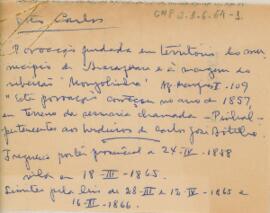 São Carlos
CMP 2.1.6.64-1
Povoação fundada em território do mu-
nicipio de Araraquara e à margem do
ribeirão "Mongolinho" I-109
"Esta povoação começou no anno de 1857,
em terreno da sesmaria chamada - Pinhal -
pertencentes aos herdeiros de Carlos José Botelho.
Freguesia por lei provincial a 24-IV-1858
vila em 18-III-1865.
Limites pelas leis de 28-III e 18-IV-1865 e
16-III-1866.